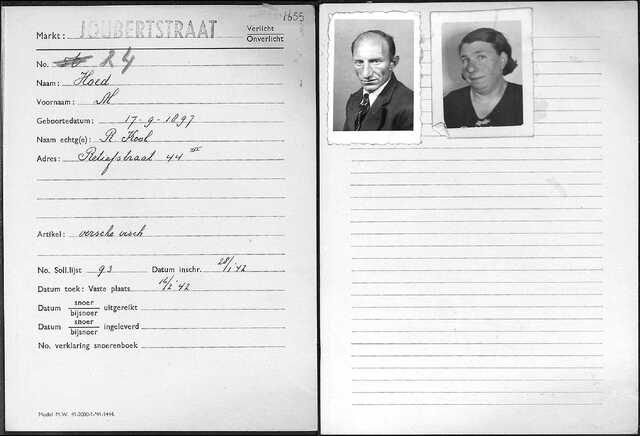 1655
Markt: JOUBERTSTRAAT Verlicht
Onverlicht
No. 24
Naam: Hoed
Voornaam: M
Geboortedatum: 17-9-1897
Naam echtg(e): R Kool
Adres: Reliefstraat 44 III
Artikel: versche visch
No. Soll.lijst 93 Datum inschr. 28/1 '42
Datum toek: Vaste plaats 16/2 '42
Datum snoer
bijsnoer uitgereikt
Datum snoer
bijsnoer ingeleverd
No. verklaring snoerenboek
Model M.W. 41-2000-1-'41-1446.